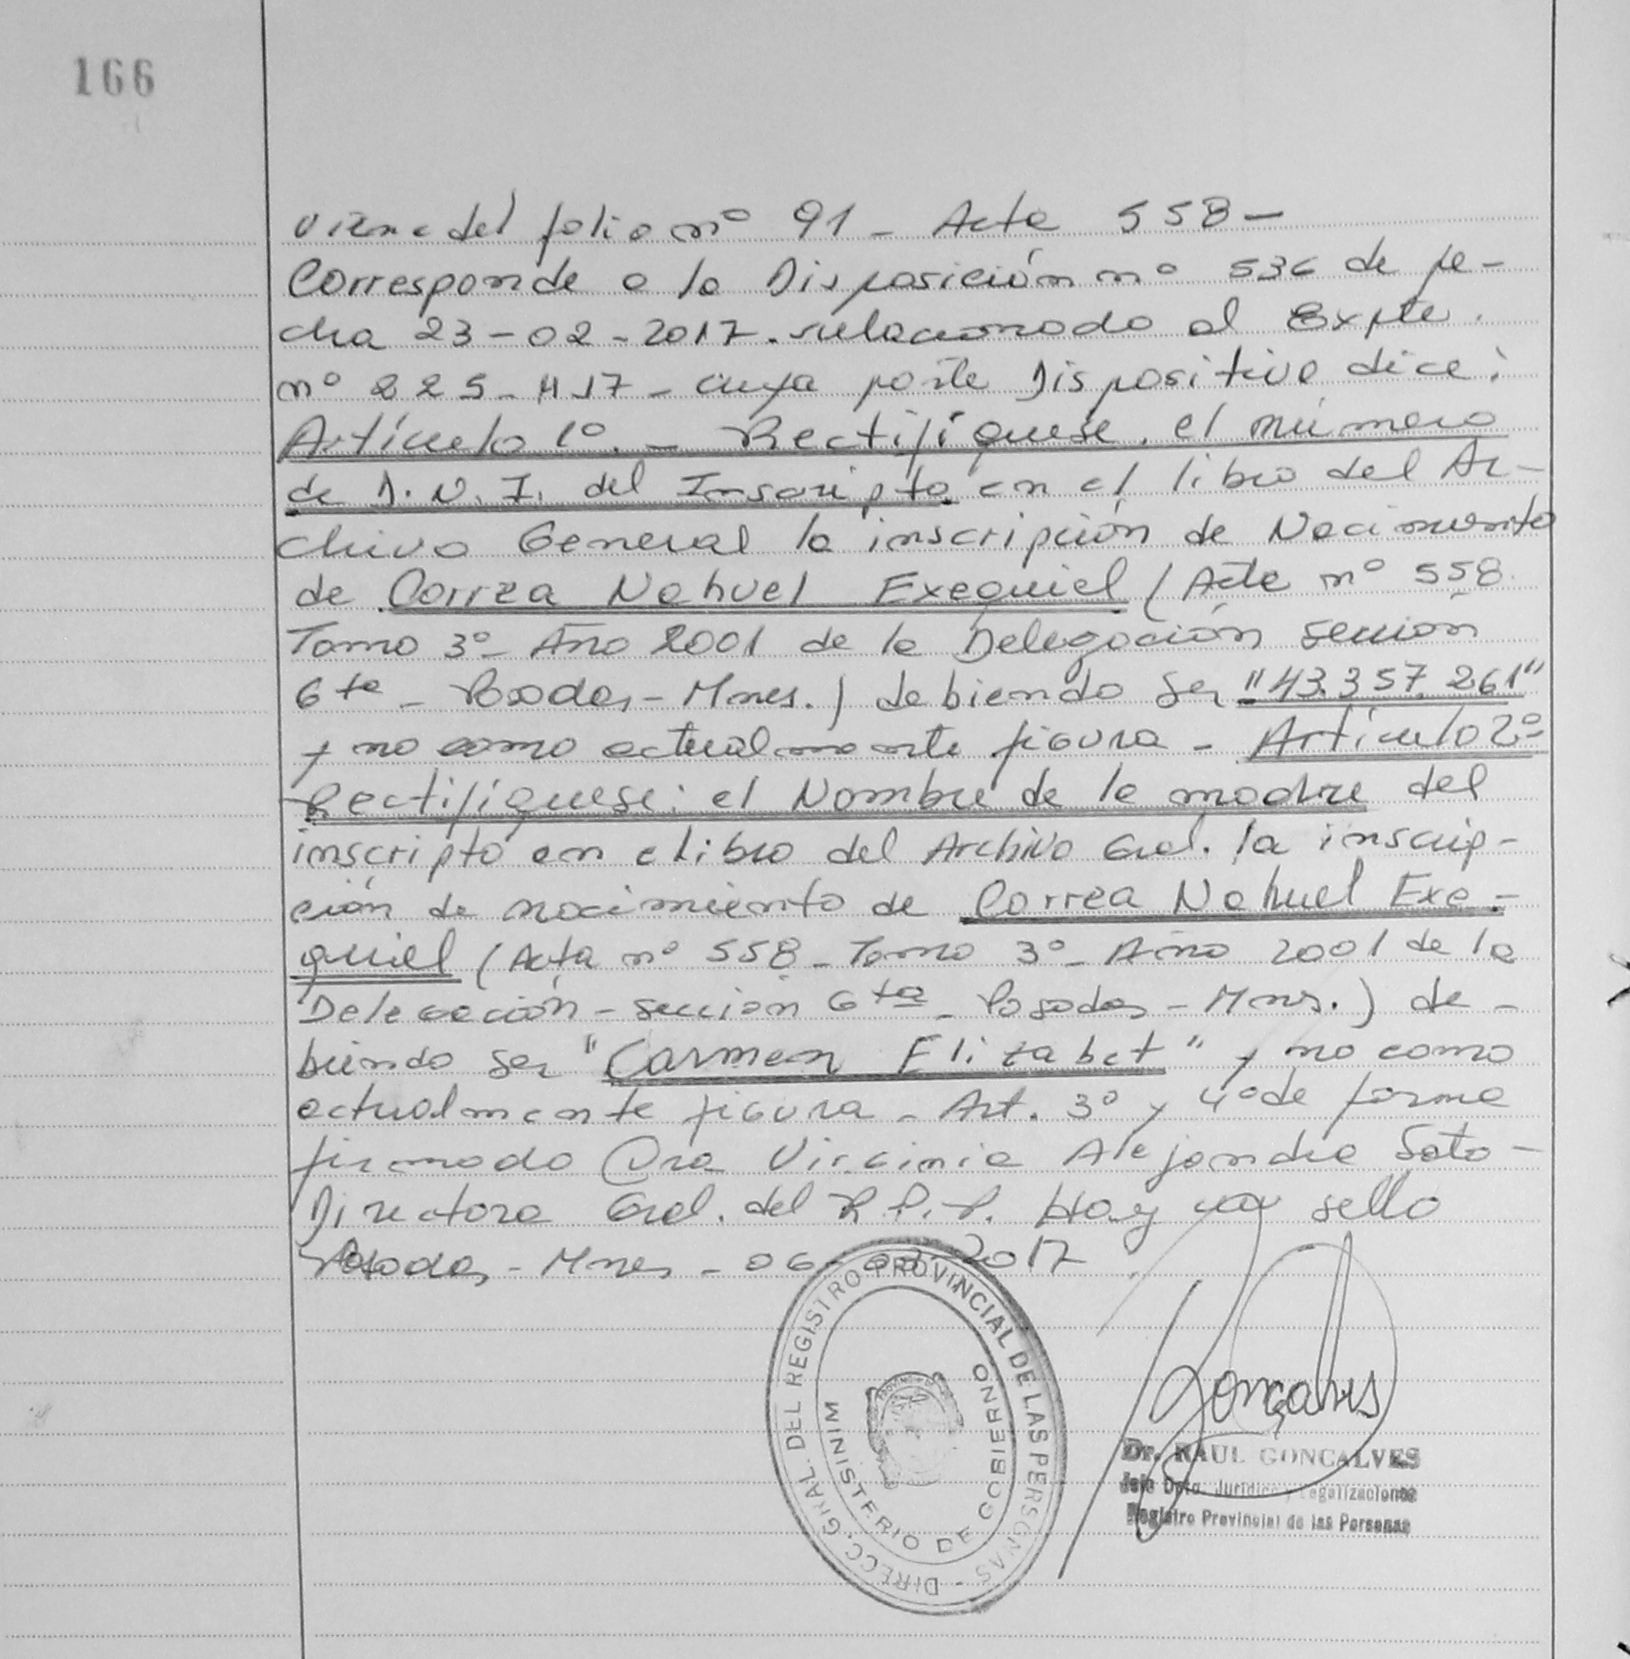 166
Viene del folio nº 91 - Acta 558 -
Corresponde a la Disposición nº 536 de fe-
cha 23-02-2017. relacionado al Expte.
nº 225-H-17 - cuya parte Dispositiva dice:
Artículo 1º. - Rectifíquese. el número
de D.N.I. del Inscripto en el libro del Ar-
chivo General la inscripción de Nacimiento
de Correa Nahuel Exequiel (Acta nº 558
Tomo 3º - Año 2001 de la Delegación sección
6ta - Posadas - Mnes.) debiendo ser "43.357.261"
y no como actualmente figura - Artículo 2º
Rectifíquese: el Nombre de la madre del
inscripto en el libro del Archivo Gral. la inscrip-
ción de nacimiento de Correa Nahuel Exe-
quiel (Acta nº 558 - Tomo 3º - Año 2001 de la
Delegación - sección 6ta - Posadas - Mns.) de-
biendo ser "Carmen Elizabet" y no como
actualmente figura - Art. 3º y 4º de forma
firmado Dra Virginia Alejandra Soto -
Directora Gral. del R.P.P. Hay un sello
Posadas - Mnes - 06-03-2017
DIRECC. GRAL. DEL REGISTRO PROVINCIAL DE LAS PERSONAS -
MINISTERIO DE GOBIERNO
Gonçalves
Dr. RAUL GONCALVES
Jefe Dpto. Jurídico y Legalizaciones
Registro Provincial de las Personas